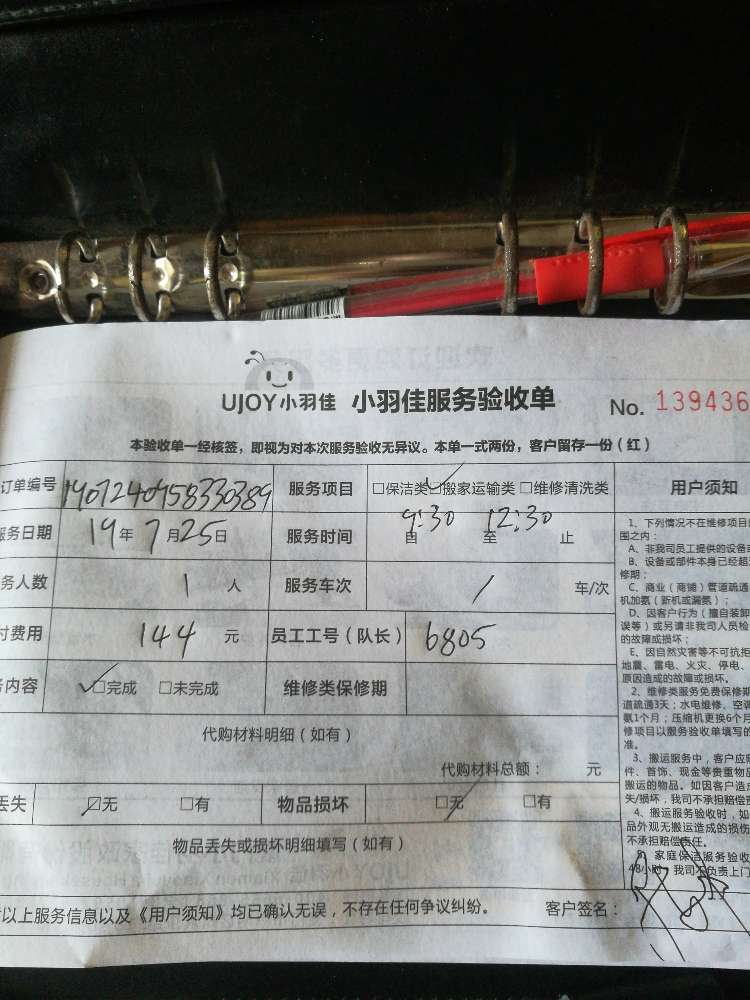 UJOY小羽佳 小羽佳服务验收单 No. 139436
本验收单一经核签，即视为对本次服务验收无异议。本单一式两份，客户留存一份（红）
订单编号 服务项目 □保洁类□搬家运输类 □维修清洗类 用户须知
服务日期 19年7月25日 服务时间 自9:30 至12:30 止
务人数 1 人 服务车次 / 车/次
付费用 144 元 员工工号（队长） 6805
务内容 □完成 □未完成 维修类保修期
代购材料明细（如有）
代购材料总额： 元
丢失 □无 □有 物品损坏 □无 □有
物品丢失或损坏明细填写（如有）
以上服务信息以及《用户须知》均已确认无误，不存在任何争议纠纷。 客户签名：
1、下列情况不在维修项目
围之内：
A、非我司员工提供的设备
B、设备或部件本身已经超
修期；
C、商业（商铺）管道疏通
机加氨（新机或漏氨）；
D、因客户行为（擅自装卸
误等）或另请非我司人员检
的故障或损坏；
E、因自然灾害等不可抗拒
地震、雷电、火灾、停电、
原因造成的故障或损坏。
2、维修类服务免费保修期
道疏通3天；水电维修、空调
氨1个月；压缩机更换6个月
修项目以服务验收单填写的
准。
3、搬运服务中，客户应
件、首饰、现金等贵重物品
搬运的物品。如因客户造成
失/损坏，我司不承担赔偿
4、搬运服务验收时，如
品外观无搬运造成的损伤
不承担赔偿责任。
家庭保洁服务验收
48小时，我司不负责上门